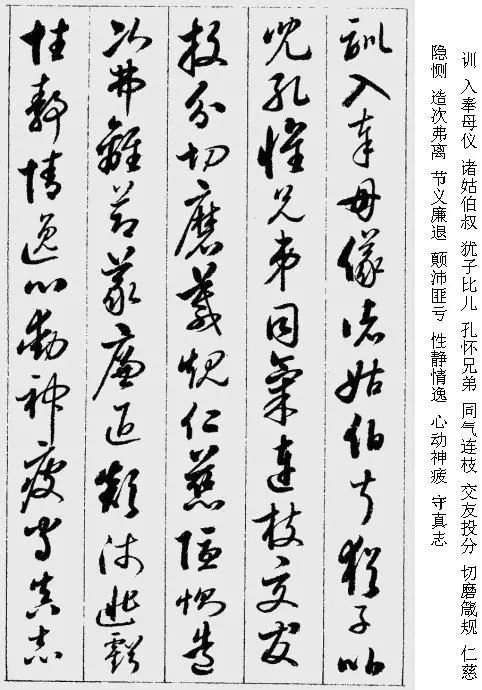 训 入奉母仪 诸姑伯叔 犹子比儿 孔怀兄弟 同气连枝 交友投分 切磨箴规 仁慈
隐恻 造次弗离 节义廉退 颠沛匪亏 性静情逸 心动神疲 守真志
訓入奉母儀諸姑伯叔猶子比
兒孔懷兄弟同氣連枝交友
投分切磨箴規仁慈隱惻造
次弗離節義廉退顛沛匪虧
性静情逸心動神疲守真志